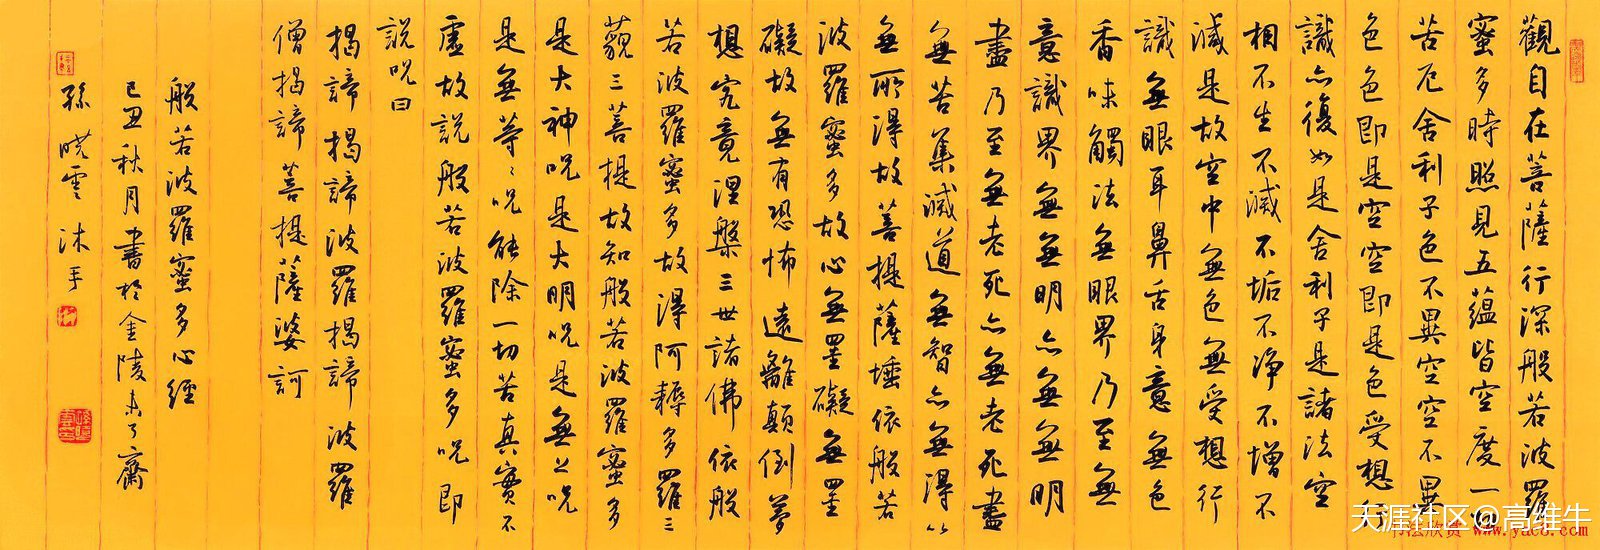 觀自在菩薩行深般若波羅
蜜多時照見五蘊皆空度一切
苦厄舍利子色不異空空不異
色色即是空空即是色受想行
識亦復如是舍利子是諸法空
相不生不滅不垢不净不增不
減是故空中無色無受想行
識無眼耳鼻舌身意無色
香味觸法無眼界乃至無
意識界無無明亦無無明
盡乃至無老死亦無老死盡
無苦集滅道無智亦無得以
無所得故菩提薩埵依般若
波羅蜜多故心無罣礙無罣
礙故無有恐怖遠離顛倒夢
想究竟涅槃三世諸佛依般
若波羅蜜多故得阿耨多羅三
藐三菩提故知般若波羅蜜多
是大神咒是大明咒是無上咒
是無等等咒能除一切苦真實不
虛故說般若波羅蜜多咒即
說咒曰
揭諦揭諦波羅揭諦波羅
僧揭諦菩提薩婆訶
般若波羅蜜多心經
己丑秋月書於金陵未了齋
孫曉雲沐手
天涯社区@高维牛
书法欣赏 www.yac8.com